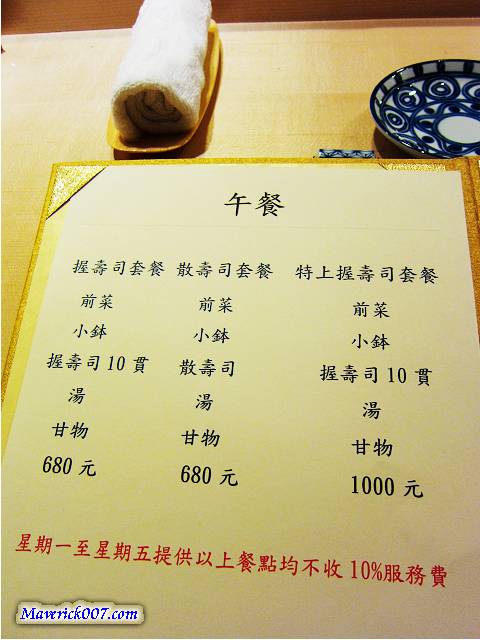 午餐
握壽司套餐
前菜
小鉢
握壽司10貫
湯
甘物
680元
散壽司套餐
前菜
小鉢
散壽司
湯
甘物
680元
特上握壽司套餐
前菜
小鉢
握壽司10貫
湯
甘物
1000元
星期一至星期五提供以上餐點均不收10%服務費
Maverick007.com